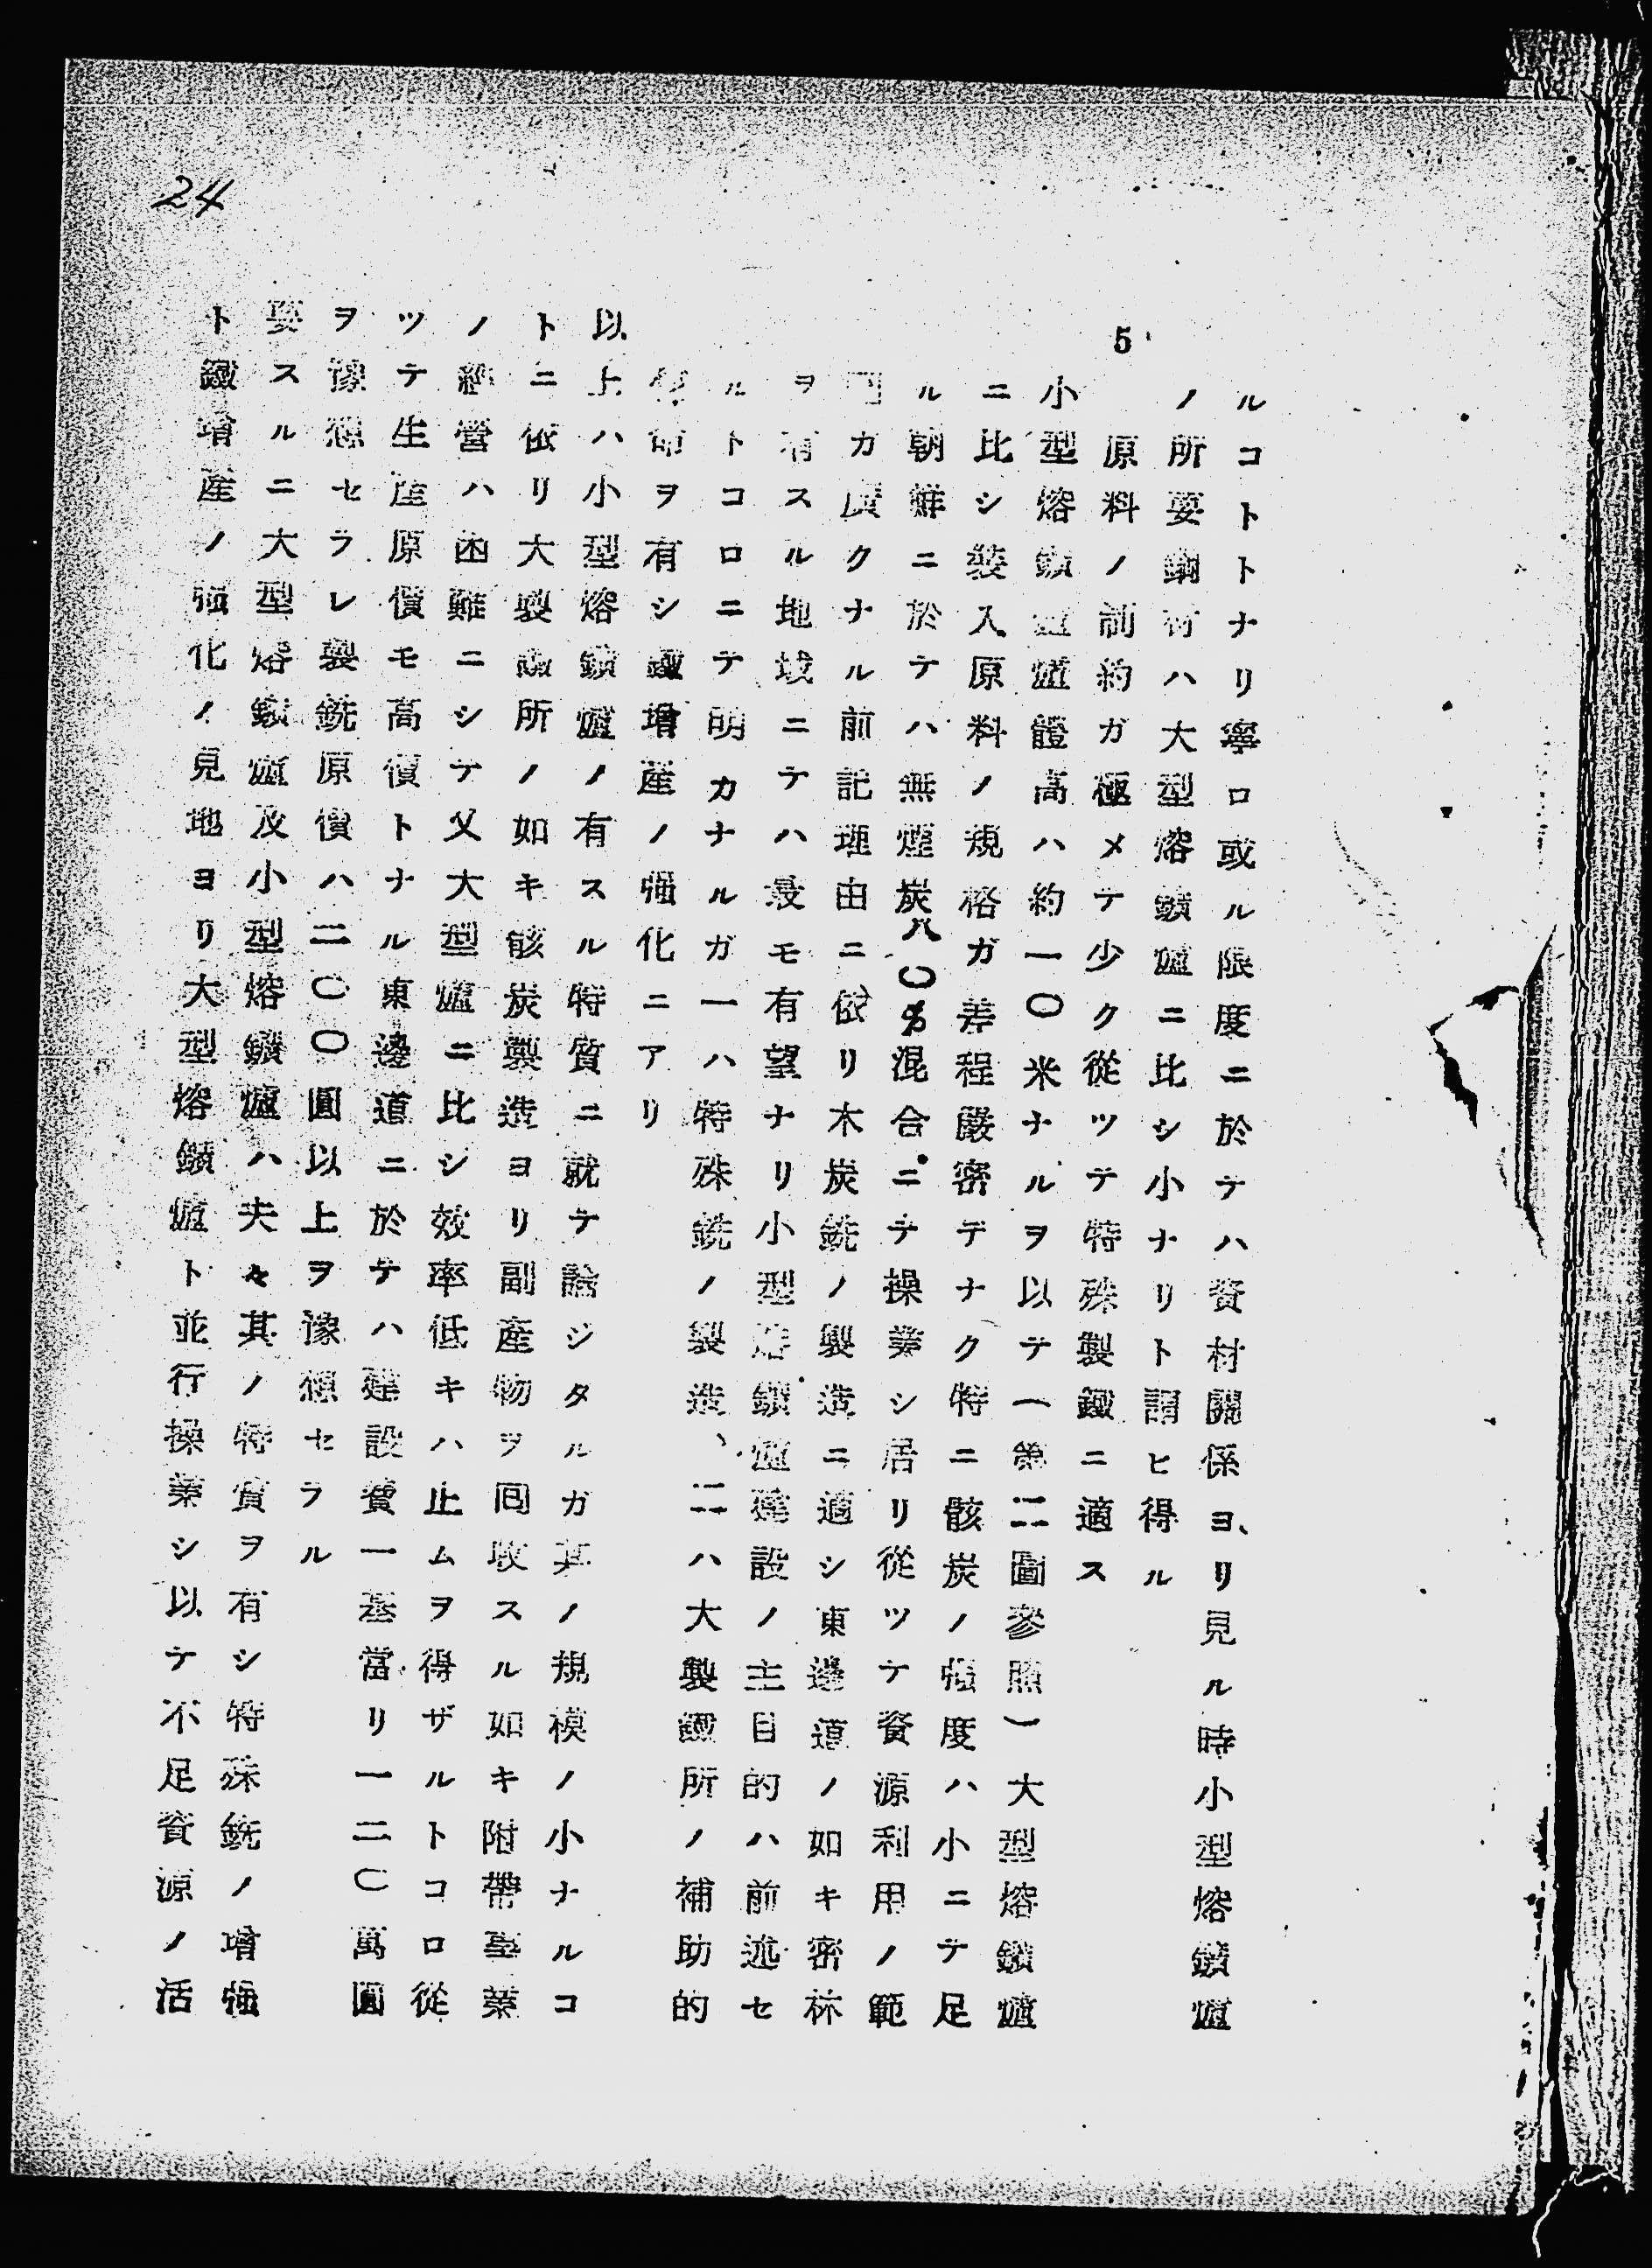 24
ルコトトナリ寧ロ或ル限度ニ於テハ資材關係ヨリ見ル時小型熔鑛爐
ノ所要鋼材ハ大型熔鑛爐ニ比シ小ナリト謂ヒ得ル
5 原料ノ制約ガ極メテ少ク從ツテ特殊製鐵ニ適ス
小型熔鑛爐爐體高ハ約一〇米ナルヲ以テ(第二圖參照)大型熔鑛爐
ニ比シ裝入原料ノ規格ガ差程嚴密デナク特ニ骸炭ノ强度ハ小ニテ足
ル朝鮮ニ於テハ無煙炭八〇%混合ニテ操業シ居リ從ツテ資源利用ノ範
圍ガ廣クナル前記理由ニ依リ木炭銑ノ製造ニ適シ東邊道ノ如キ密林
ヲ有スル地域ニテハ最モ有望ナリ小型熔鑛爐建設ノ主目的ハ前述セ
ルトコロニテ明カナルガ一ハ特殊銑ノ製造、二ハ大製鐵所ノ補助的
使命ヲ有シ鐵增産ノ强化ニアリ
以上ハ小型熔鑛爐ノ有スル特質ニ就テ論ジタルガ其ノ規模ノ小ナルコ
トニ依リ大製鐵所ノ如キ骸炭製造ヨリ副産物ヲ囘收スル如キ附帶事業
ノ經營ハ困難ニシテ又大型爐ニ比シ效率低キハ止ムヲ得ザルトコロ從
ツテ生産原價モ高價トナル東邊道ニ於テハ建設費一基當リ一二〇萬圓
ヲ豫想セラレ製銑原價ハ二〇〇圓以上ヲ豫想セラル
要スルニ大型熔鑛爐及小型熔鑛爐ハ夫々其ノ特質ヲ有シ特殊銑ノ增强
ト鐵增産ノ强化ノ見地ヨリ大型熔鑛爐ト並行操業シ以テ不足資源ノ活